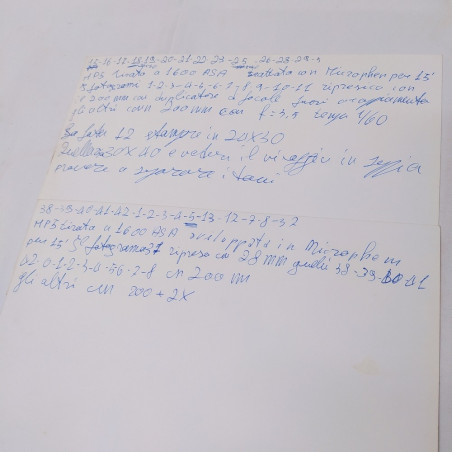 15-16-17-18-19-20-21-22-23-25-26-28-29-3
HP5 tirata a 1600 ASA trattata con Microphen per 15'
fotogrammi 1-2-3-4-5-6-7-8-9-10-11 ripresi con
200 mm con duplicatore di focale fuori
gli altri con 200 mm con f=3,5 1/60
12 stampe in 24x30
30x40 e vedere il viraggio in seppia
provare a separare i toni
38-39-40-41-42-1-2-3-4-5-13-12-7-8-32
HP5 tirata a 1600 ASA sviluppata in Microphen
per 15' fotogrammi ripresi con 28 mm quelli 38-39-40-41
42-0-1-2-3-4-56-7-8 200 mm
gli altri con 200 + 2X